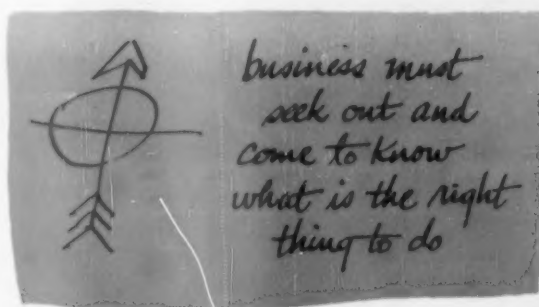 business must
seek out and
come to know
what is the right
thing to do